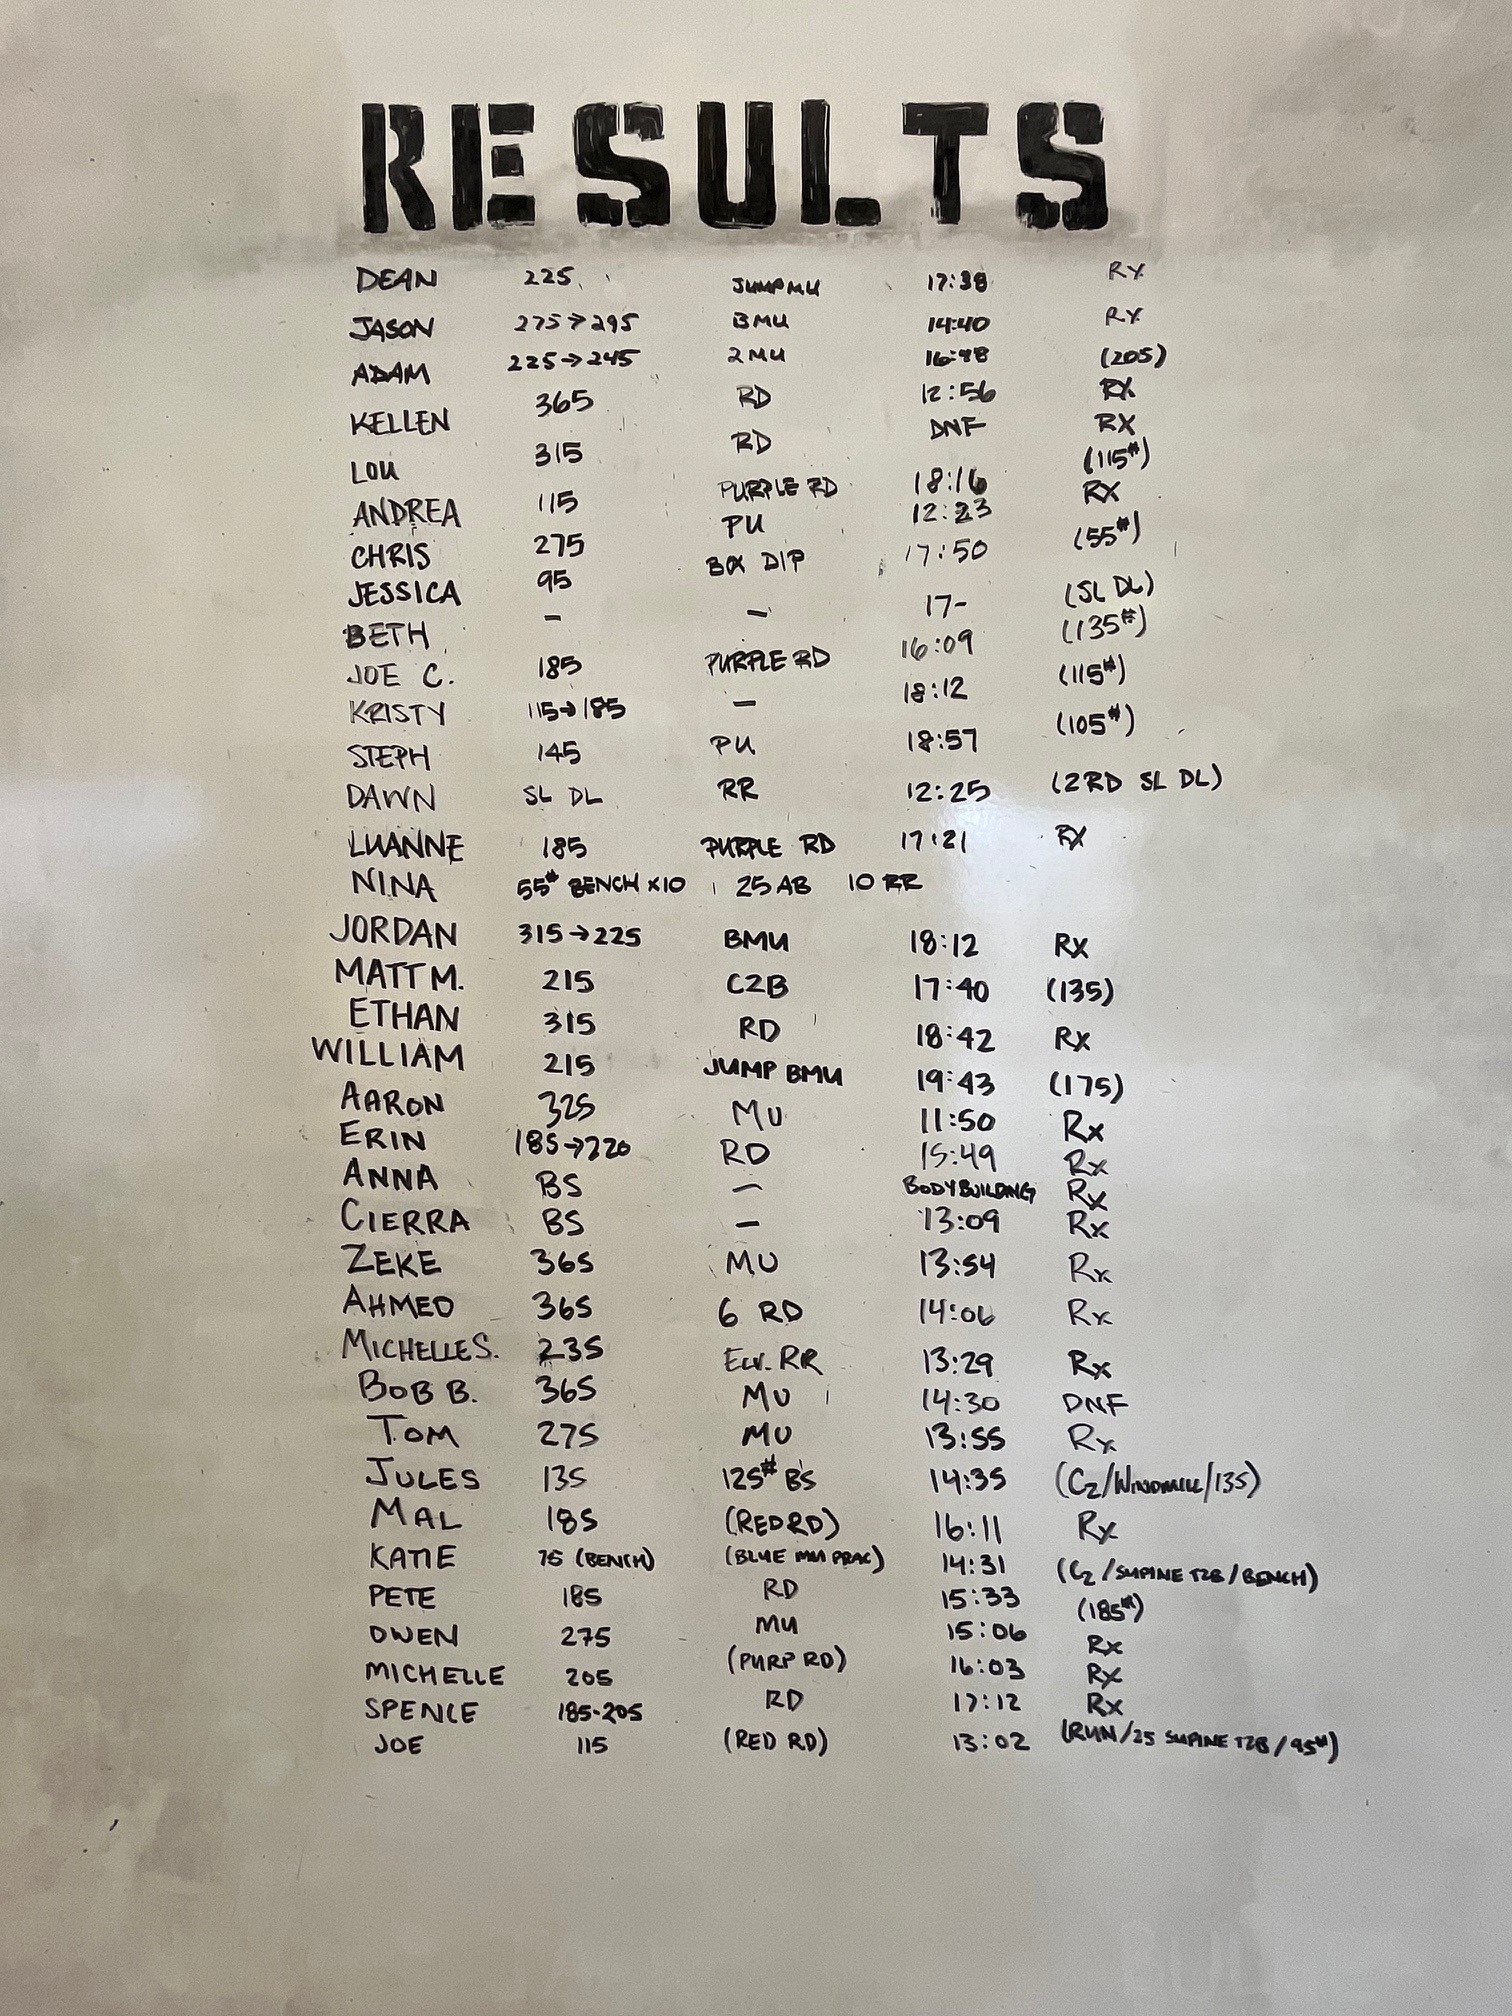 RESULTS
DEAN 225 JUMP MU 17:38 RX
JASON 275→295 BMU 14:40 RX
ADAM 225→245 2 MU 16:48 (205)
KELLEN 365 RD 12:56 RX
LOU 315 RD DNF RX
ANDREA 115 PURPLE RD 18:16 (115#)
CHRIS 275 PU 12:23 RX
JESSICA 95 BOX DIP 17:50 (55#)
BETH - - 17- (SL DL)
JOE C. 185 PURPLE RD 16:09 (135#)
KRISTY 115→185 - 18:12 (115#)
STEPH 145 PU 18:57 (105#)
DAWN SL DL RR 12:25 (2RD SL DL)
LUANNE 185 PURPLE RD 17:21 RX
NINA 55# BENCH X10 25 AB 10 RR
JORDAN 315→225 BMU 18:12 RX
MATT M. 215 C2B 17:40 (135)
ETHAN 315 RD 18:42 RX
WILLIAM 215 JUMP BMU 19:43 (175)
AARON 325 MU 11:50 Rx
ERIN 185→220 RD 15:49 Rx
ANNA BS - BODYBUILDING Rx
CIERRA BS - 13:09 Rx
ZEKE 365 MU 13:54 Rx
AHMED 365 6 RD 14:06 Rx
MICHELLE S. 235 ELV. RR 13:29 Rx
BOB B. 365 MU 14:30 DNF
TOM 275 MU 13:55 Rx
JULES 135 125# BS 14:35 (C2/WINDMILL/135)
MAL 185 (RED RD) 16:11 Rx
KATIE 75 (BENCH) (BLUE MU PRAC) 14:31 (C2/SUPINE T2B/BENCH)
PETE 185 RD 15:33 (185#)
OWEN 275 MU 15:06 Rx
MICHELLE 205 (PURP RD) 16:03 Rx
SPENCE 185-205 RD 17:12 Rx
JOE 115 (RED RD) 13:02 (RUN/25 SUPINE T2B/95#)